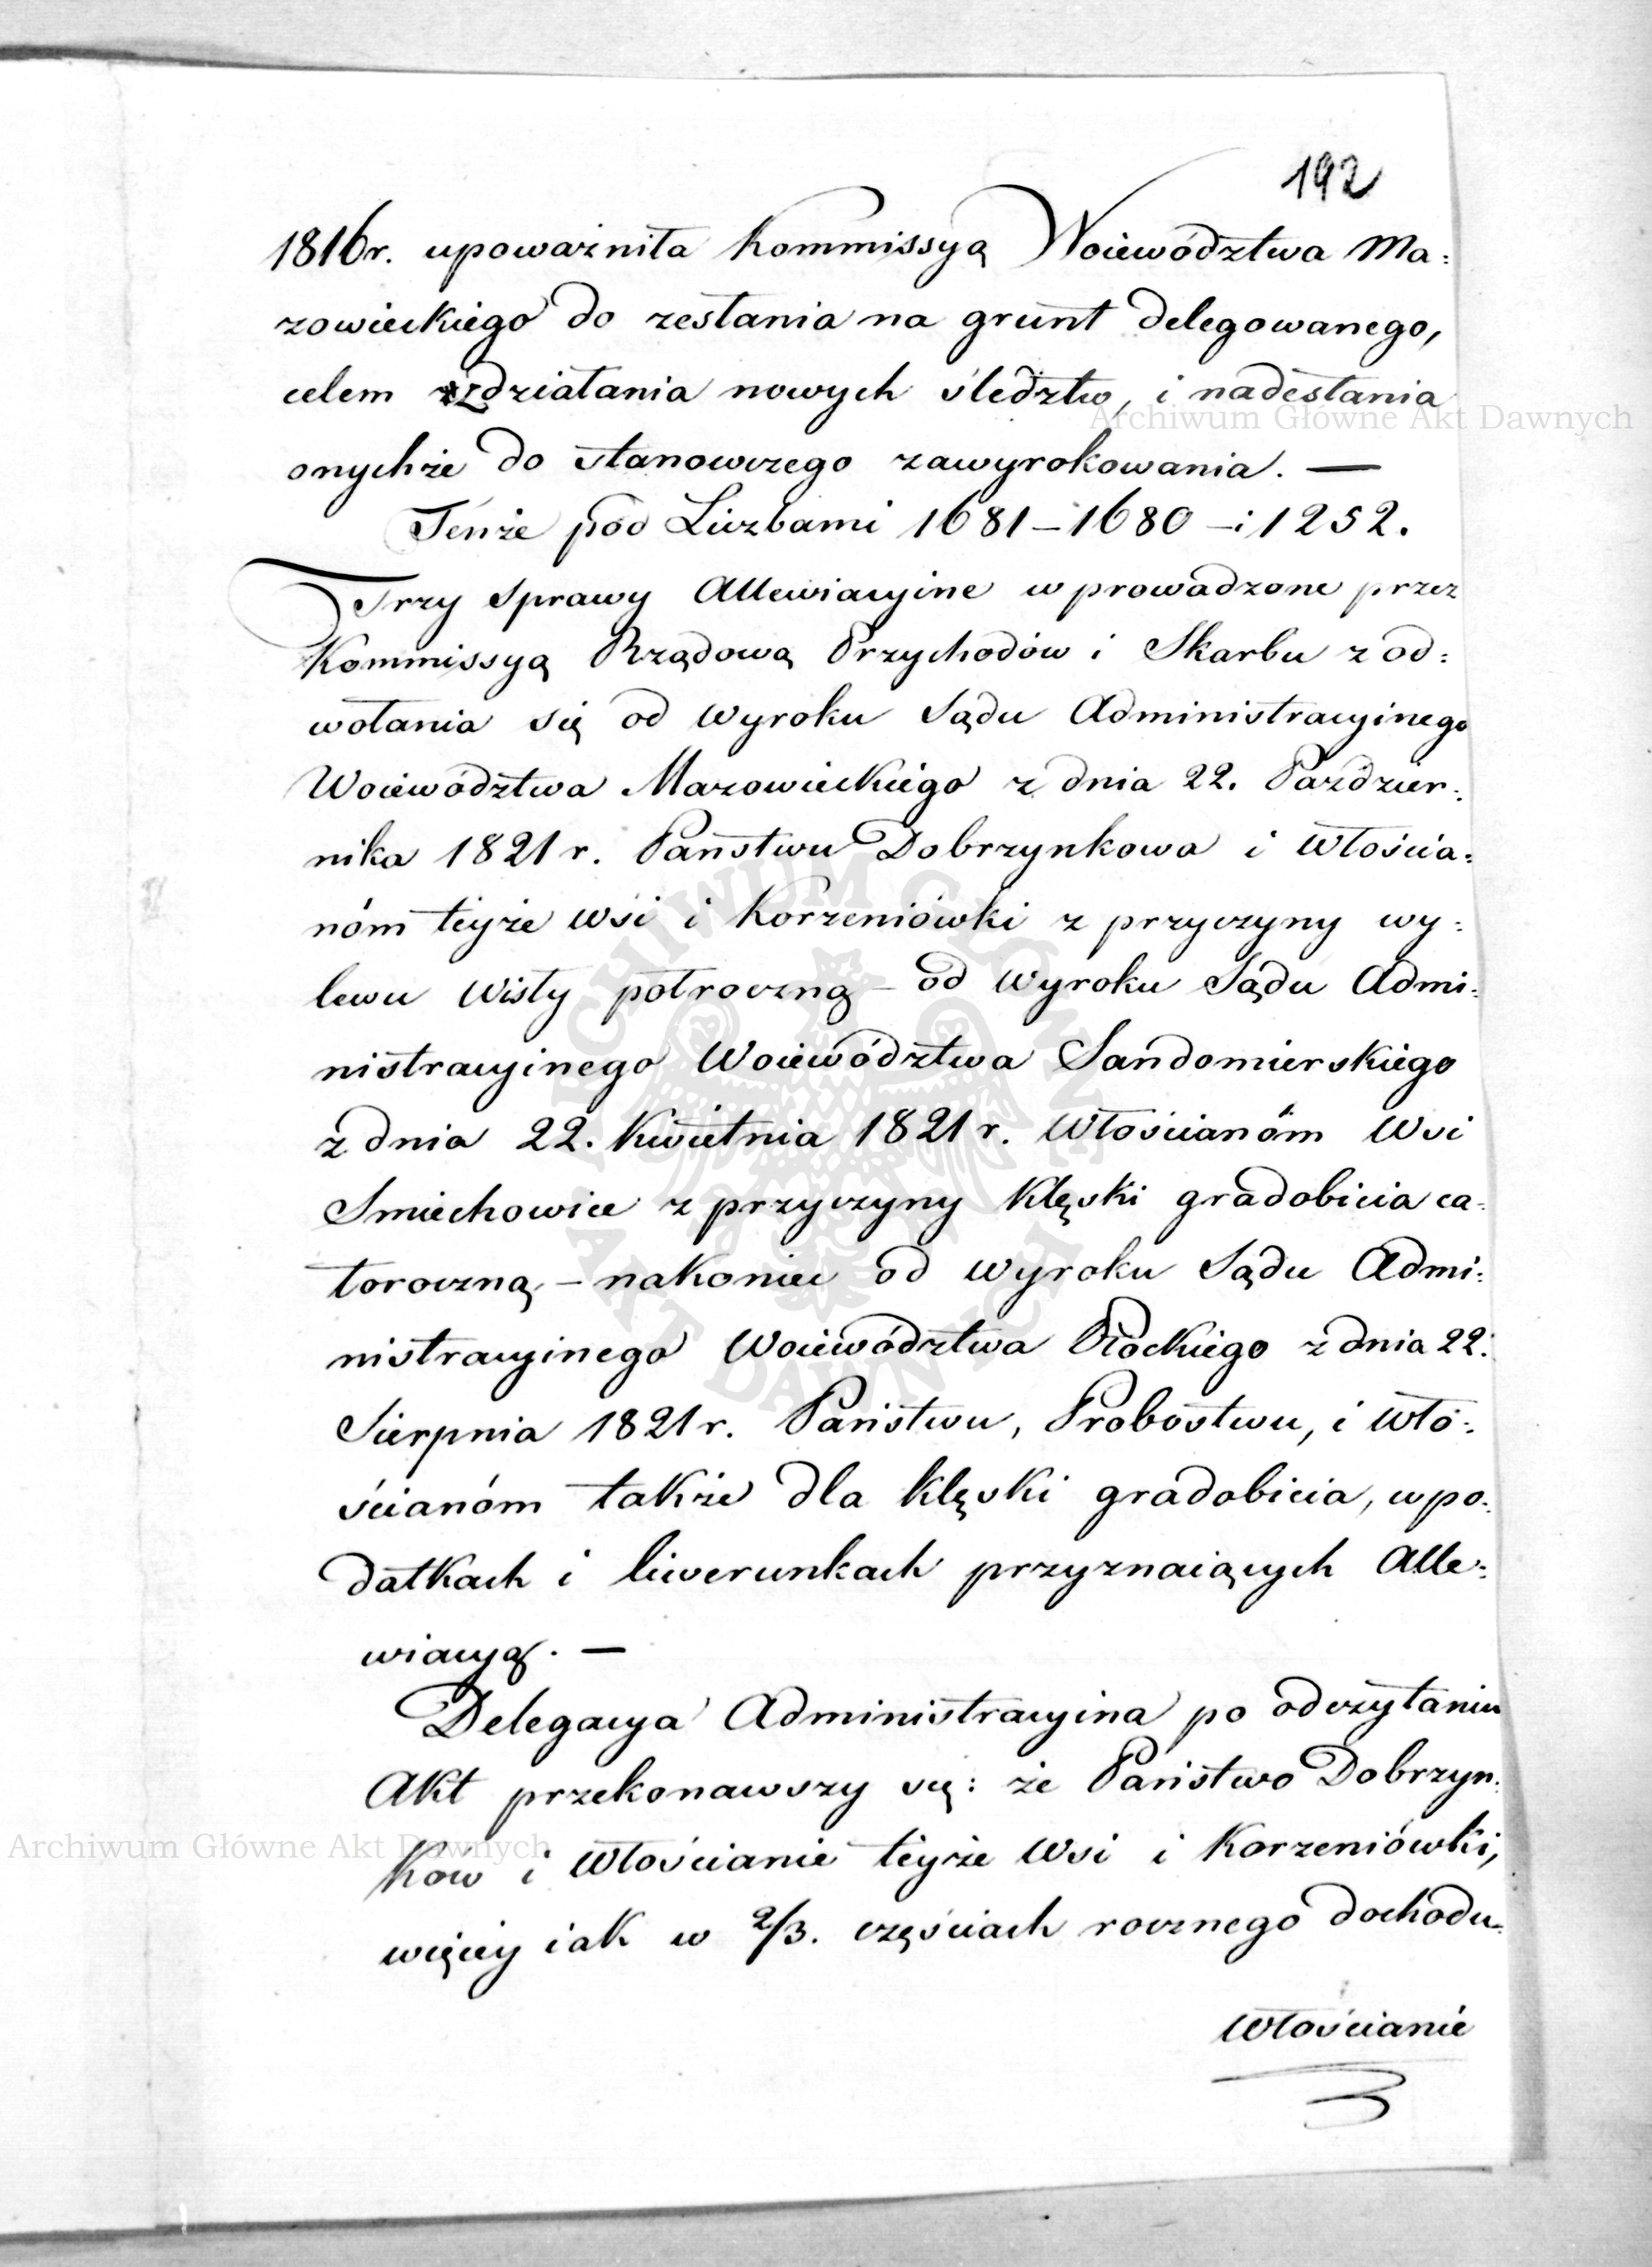 192
1816 r. upoważniła Kommissyą Woiewództwa Ma:
zowieckiego do zesłania na grunt delegowanego,
celem zdziałania nowych śledztw, i nadesłania
onychże do stanowczego zawyrokowania. —
Tenże pod Liczbami 1681 – 1680 – i 1252.
Trzy Sprawy Allewiacyine wprowadzone przez
Kommissyą Rządową Przychodów i Skarbu z od:
wołania się od Wyroku Sądu Administracyinego
Woiewództwa Mazowieckiego z dnia 22. Paździer:
nika 1821 r. Państwu Dobrzynkowa i Włościa:
nóm teyże Wsi i Korzeniówki z przyczyny wy:
lewu Wisły półroczną – od Wyroku Sądu Admi:
nistracyinego Woiewództwa Sandomierskiego
z dnia 22. Kwietnia 1821 r. Włościanóm Wsi
Smiechowice z przyczyny Klęski gradobicia ca:
łoroczną, – nakoniec od Wyroku Sądu Admi:
nistracyinego Woiewództwa Płockiego z dnia 22.
Sierpnia 1821 r. Państwu, Probostwu, i Wło:
ścianóm także dla klęski gradobicia, w po:
datkach i liwerunkach przyznaiących Alle:
wiacyą. —
Delegacya Administracyina po odczytaniu
Akt przekonawszy się: że Państwo Dobrzyn:
ków i Włościanie teyże Wsi i Korzeniówki,
więcey iak w 2/3. częściach rocznego dochodu.
Włościanie
Archiwum Główne Akt Dawnych
Archiwum Główne Akt Dawnych
ARCHIWUM GŁÓWNE AKT DAWNYCH